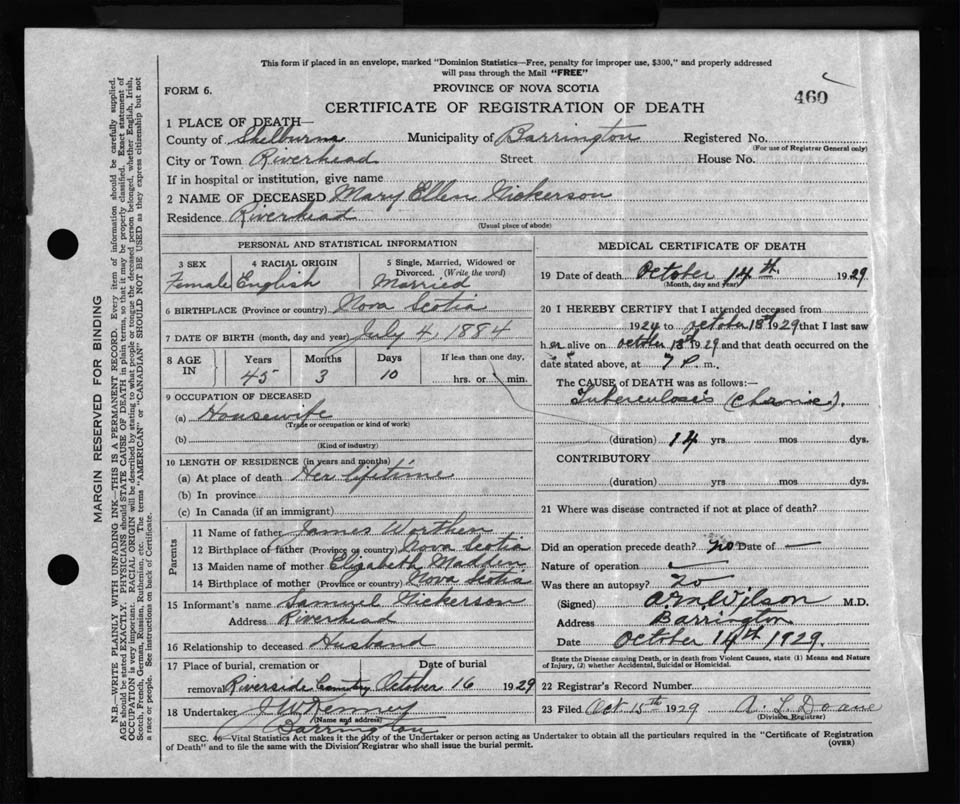 This form if placed in an envelope, marked "Dominion Statistics—Free, penalty for improper use, $300," and properly addressed
will pass through the Mail "FREE"
FORM 6.
PROVINCE OF NOVA SCOTIA
460
CERTIFICATE OF REGISTRATION OF DEATH
1 PLACE OF DEATH—
County of Shelburne Municipality of Barrington Registered No.
(For use of Registrar General only)
City or Town Riverhead Street House No.
If in hospital or institution, give name
2 NAME OF DECEASED Mary Ellen Nickerson
Residence Riverhead
(Usual place of abode)
PERSONAL AND STATISTICAL INFORMATION
3 SEX 4 RACIAL ORIGIN 5 Single, Married, Widowed or
Divorced. (Write the word)
Female English Married
6 BIRTHPLACE (Province or country) Nova Scotia
7 DATE OF BIRTH (month, day and year) July 4, 1884
8 AGE IN Years Months Days If less than one day,
45 3 10 hrs. or min.
9 OCCUPATION OF DECEASED
(a) Housewife
(Trade or occupation or kind of work)
(b)
(Kind of industry)
10 LENGTH OF RESIDENCE (in years and months)
(a) At place of death Her lifetime
(b) In province
(c) In Canada (if an immigrant)
Parents
11 Name of father James Worthen
12 Birthplace of father (Province or country) Nova Scotia
13 Maiden name of mother Elizabeth
14 Birthplace of mother (Province or country) Nova Scotia
15 Informant's name Samuel Nickerson
Address Riverhead
16 Relationship to deceased Husband
17 Place of burial, cremation or Date of burial
removal Riverside October 16 1929
18 Undertaker J W Kenney
(Name and address)
Barrington
MEDICAL CERTIFICATE OF DEATH
19 Date of death October 14th. 1929
(Month, day and year)
20 I HEREBY CERTIFY that I attended deceased from
1924 to October 13th 1929 that I last saw
her alive on October 13th 1929 and that death occurred on the
date stated above, at 7 P. m.
The CAUSE of DEATH was as follows:—
Tuberculosis (chronic).
(duration) 14 yrs. mos dys.
CONTRIBUTORY
(duration) yrs. mos. dys.
21 Where was disease contracted if not at place of death?
Did an operation precede death? no Date of —
Nature of operation
Was there an autopsy? no
(Signed) Wilson M.D.
Address Barrington
Date October 14th, 1929.
State the Disease causing Death, or in death from Violent Causes, state (1) Means and Nature
of Injury, (2) whether Accidental, Suicidal or Homicidal.
22 Registrar's Record Number
23 Filed Oct 15th 1929 A. L. Doane
(Division Registrar)
SEC. 46—Vital Statistics Act makes it the duty of the Undertaker or person acting as Undertaker to obtain all the particulars required in the "Certificate of Registration
of Death" and to file the same with the Division Registrar who shall issue the burial permit.
(OVER)
MARGIN RESERVED FOR BINDING
N.B.—WRITE PLAINLY WITH UNFADING INK—THIS IS A PERMANENT RECORD. Every item of information should be carefully supplied.
AGE should be stated EXACTLY. PHYSICIANS should STATE CAUSE OF DEATH in plain terms, so that it may be properly classified. Exact statement of
OCCUPATION is very important. RACIAL ORIGIN will be described by stating to what people or tongue the deceased person belonged, whether English, Irish,
Scotch, French, German, Russian, Ruthenian, etc. The terms "AMERICAN" or "CANADIAN" SHOULD NOT BE USED as they express citizenship but not
a race or people. See instructions on back of Certificate.